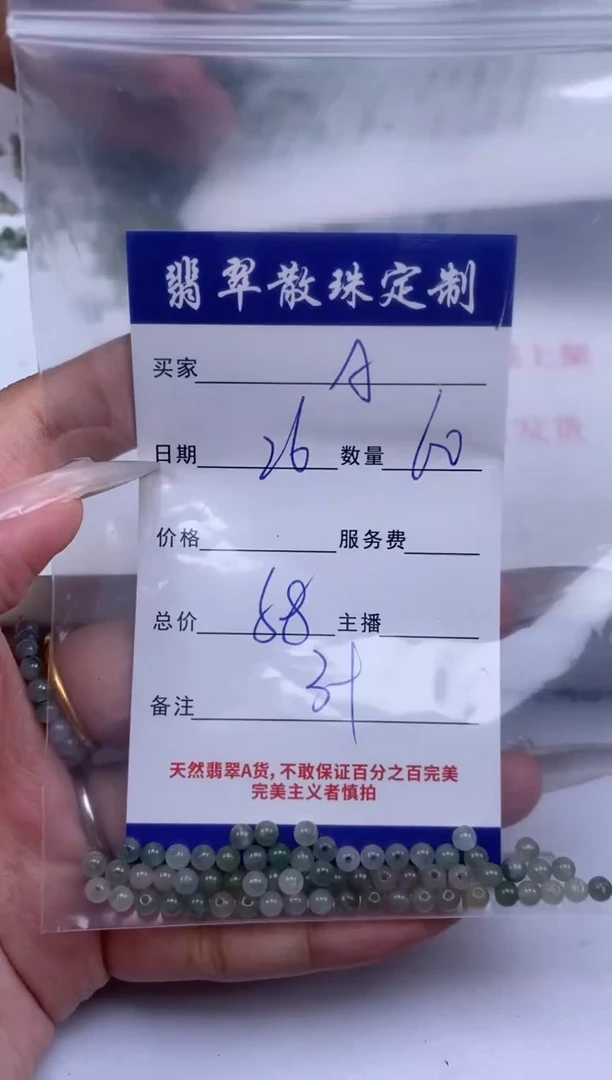 翡翠散珠定制
买家 A
日期 26 数量 60
价格 服务费
总价 68 主播
备注
天然翡翠A货，不敢保证百分之百完美
完美主义者慎拍
上架
发货